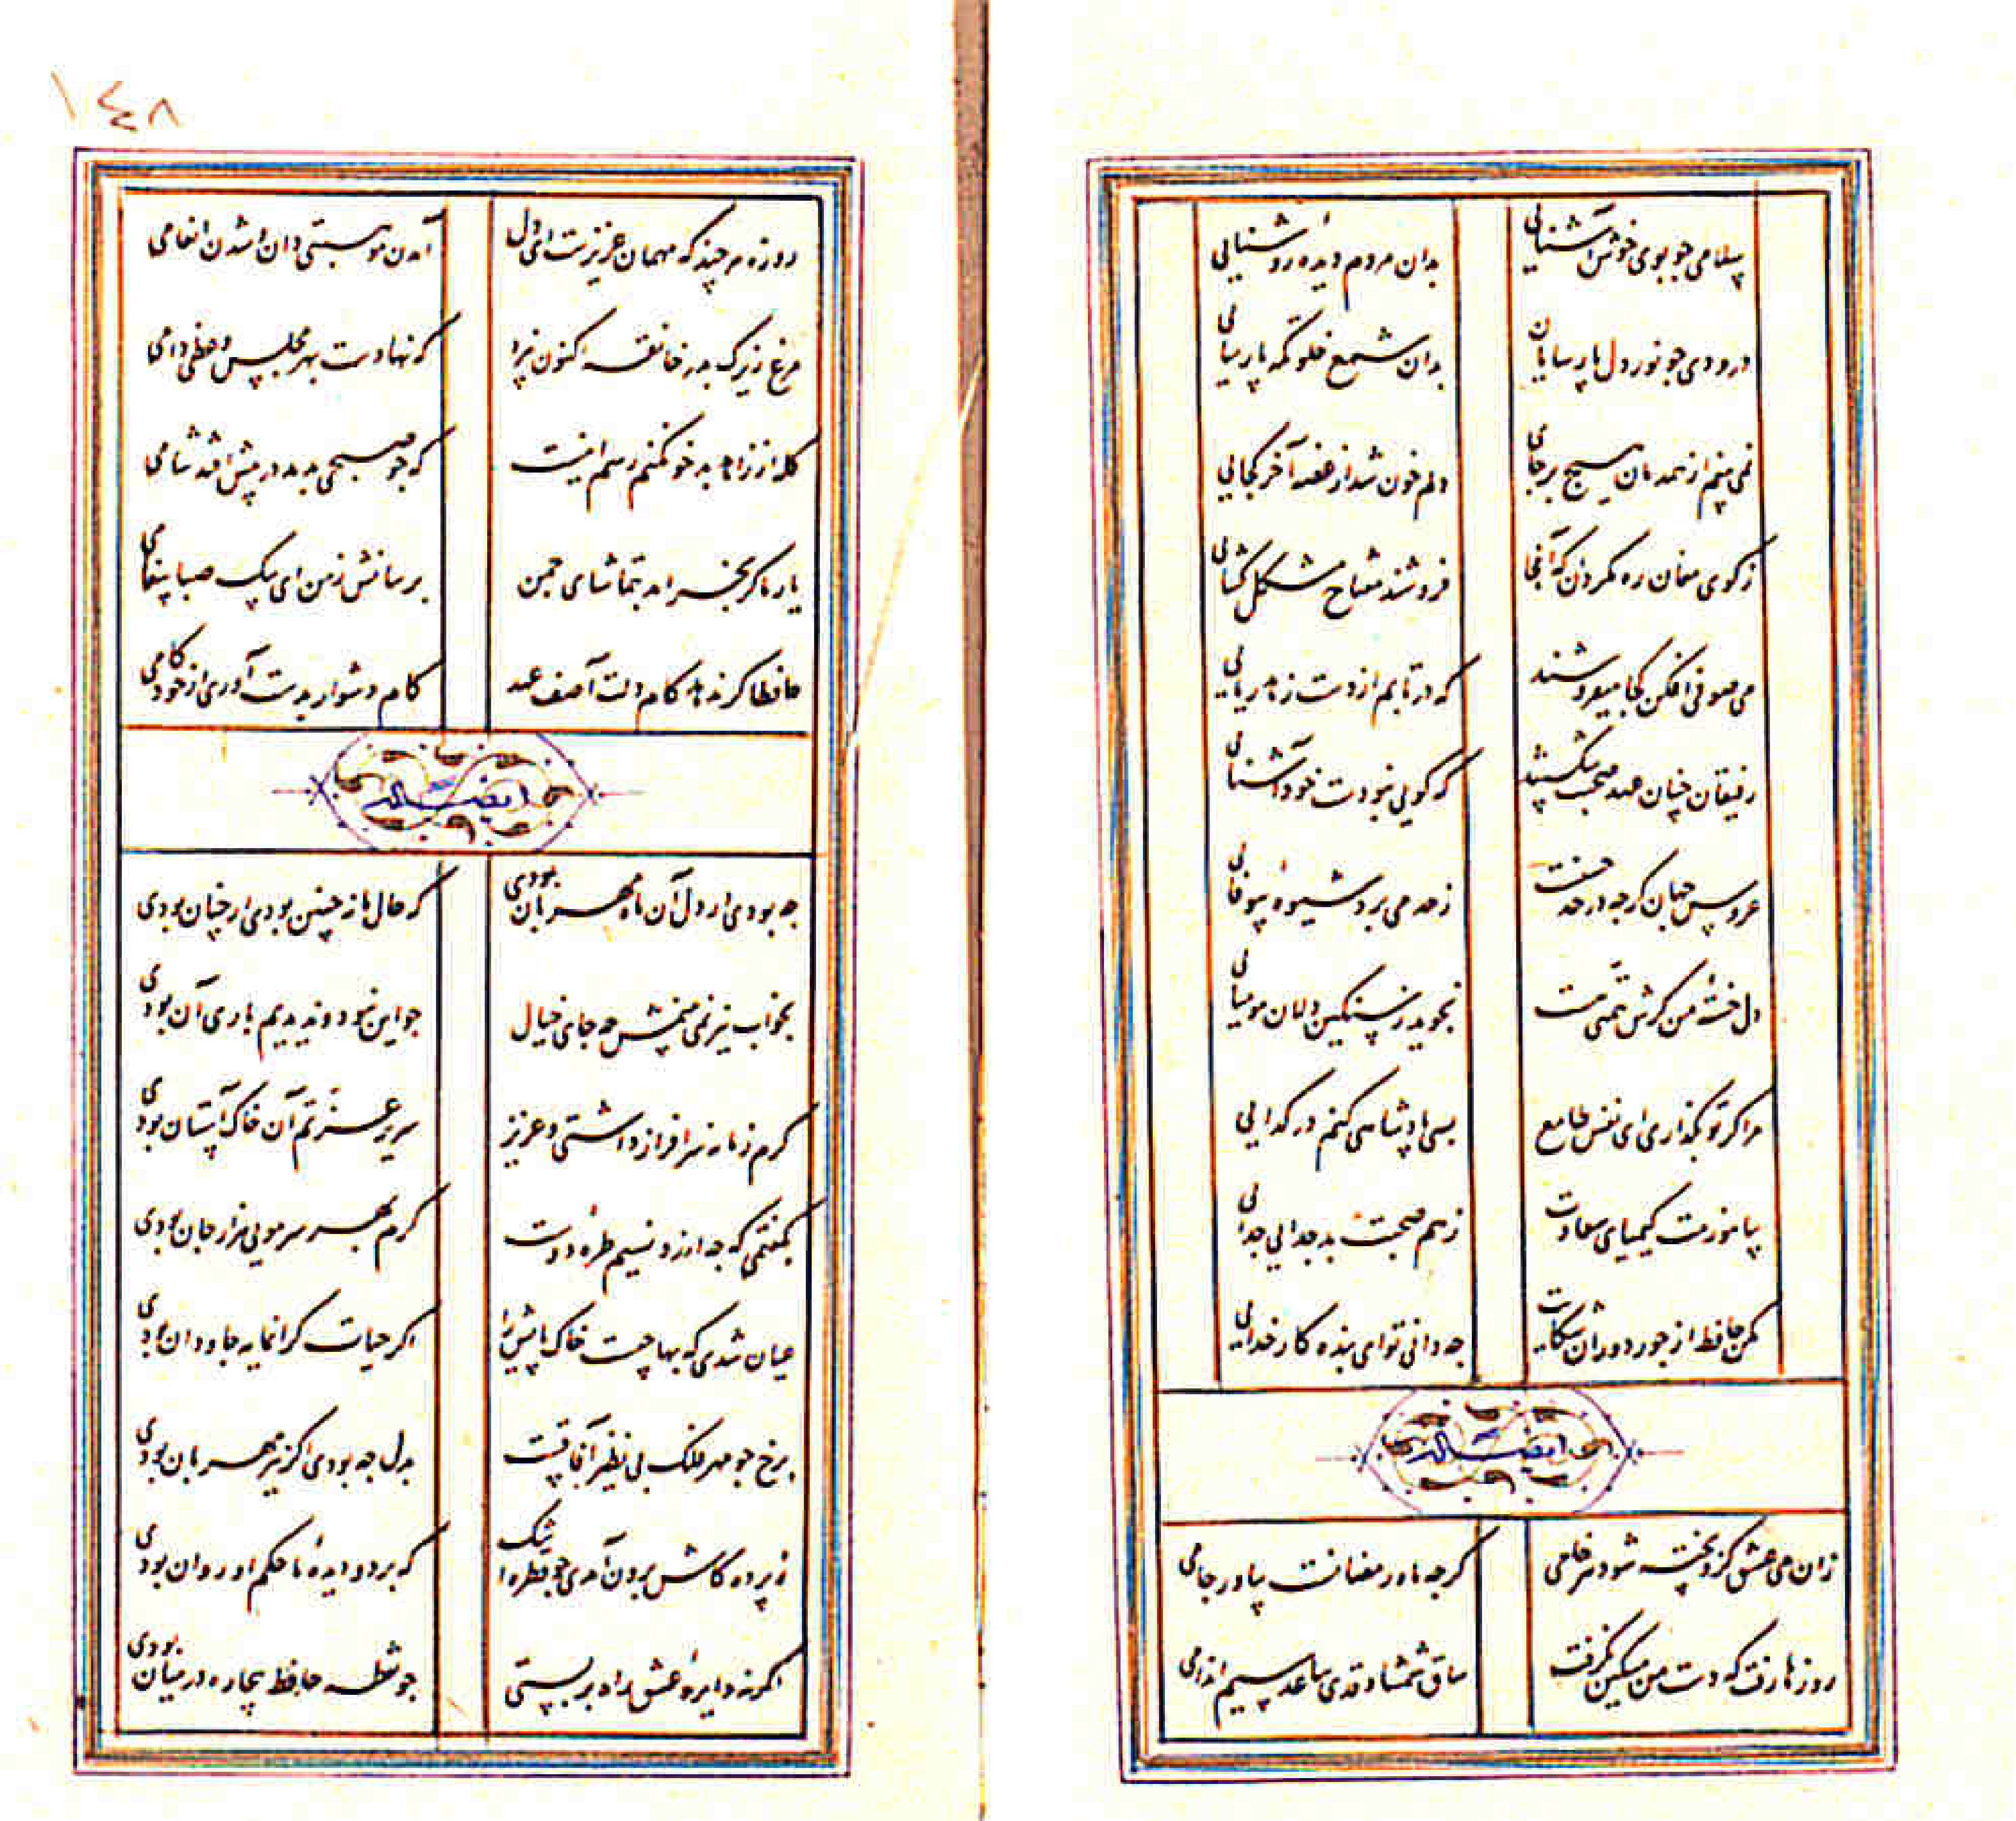 سلامی چو بوی خوش آشنایی بدان مردم دیده روشنایی
درودی چو نور دل پارسایان بدان شمع خلوتگه پارسایی
نمی بینم از همدمان هیچ بر جای دلم خون شد از غصه آخر کجایی
ز کوی مغان رخ مگردان که آنجا فروشند مفتاح مشکل گشایی
می صوفی افکن کجا میفروشند که در تابم از دست زهد ریایی
رفیقان چنان عهد صحبت شکستند که گویی نبودست خود آشنایی
عروس جهان گرچه در حد حسنست ز حد می برد شیوه بیوفایی
دل خسته من گرش همتی هست نجوید ز سنگین دلان مومیایی
مرا گر تو بگذاری ای نفس طامع بسی پادشاهی کنم در گدایی
بیاموزمت کیمیای سعادت ز هم صحبت بد جدایی جدایی
مکن حافظ از جور دوران شکایت چه دانی تو ای بنده کار خدایی
ایضاً له
زان می عشق کزو پخته شود هر خامی گرچه ماه رمضانست بیاور جامی
روزها رفت که دست من مسکین نگرفت ساق شمشاد قدی ساعد سیم اندامی
١٤٨
روزه هر چند که مهمان عزیزست ای دل آمدن موهبتی دان و شدن انعامی
مرغ زیرک بدر خانقه اکنون نپرد که نهادست بهر مجلس وعظی دامی
گله از زاهد بدخو نکنم رسم اینست که چو صبحی بدمد در پیش افتد شامی
یار ما گر بخرامد بتماشای چمن برسانش ز من ای پیک صبا پیغامی
حافظا گر ندهد کام دلت آصف عهد کام دشوار بدست آوری از خودکامی
ایضاً له
چه بودی ار دل آن ماه مهربان بودی که حال ما نه چنین بودی ار چنان بودی
بخواب نیز نمی بینمش چه جای خیال چو این نبود و ندیدیم باری آن بودی
گرم زمانه سرافراز داشتی و عزیز سریر عزتم آن خاک آستان بودی
بگفتمی که چه ارزد نسیم طره دوست گرم بهر سر مویی هزار جان بودی
عیان شدی که بها چیست خاک پایش را اگر حیات گرانمایه جاودان بودی
برخ چو مهر فلک بی نظیر آفاقست بدل چه بودی اگر نیز مهربان بودی
ز پرده کاش برون آمدی چو قطره اشک که بر دو دیده ما حکم او روان بودی
اگر نه دایره عشق راه بربستی چو نقطه حافظ بیچاره در میان بودی